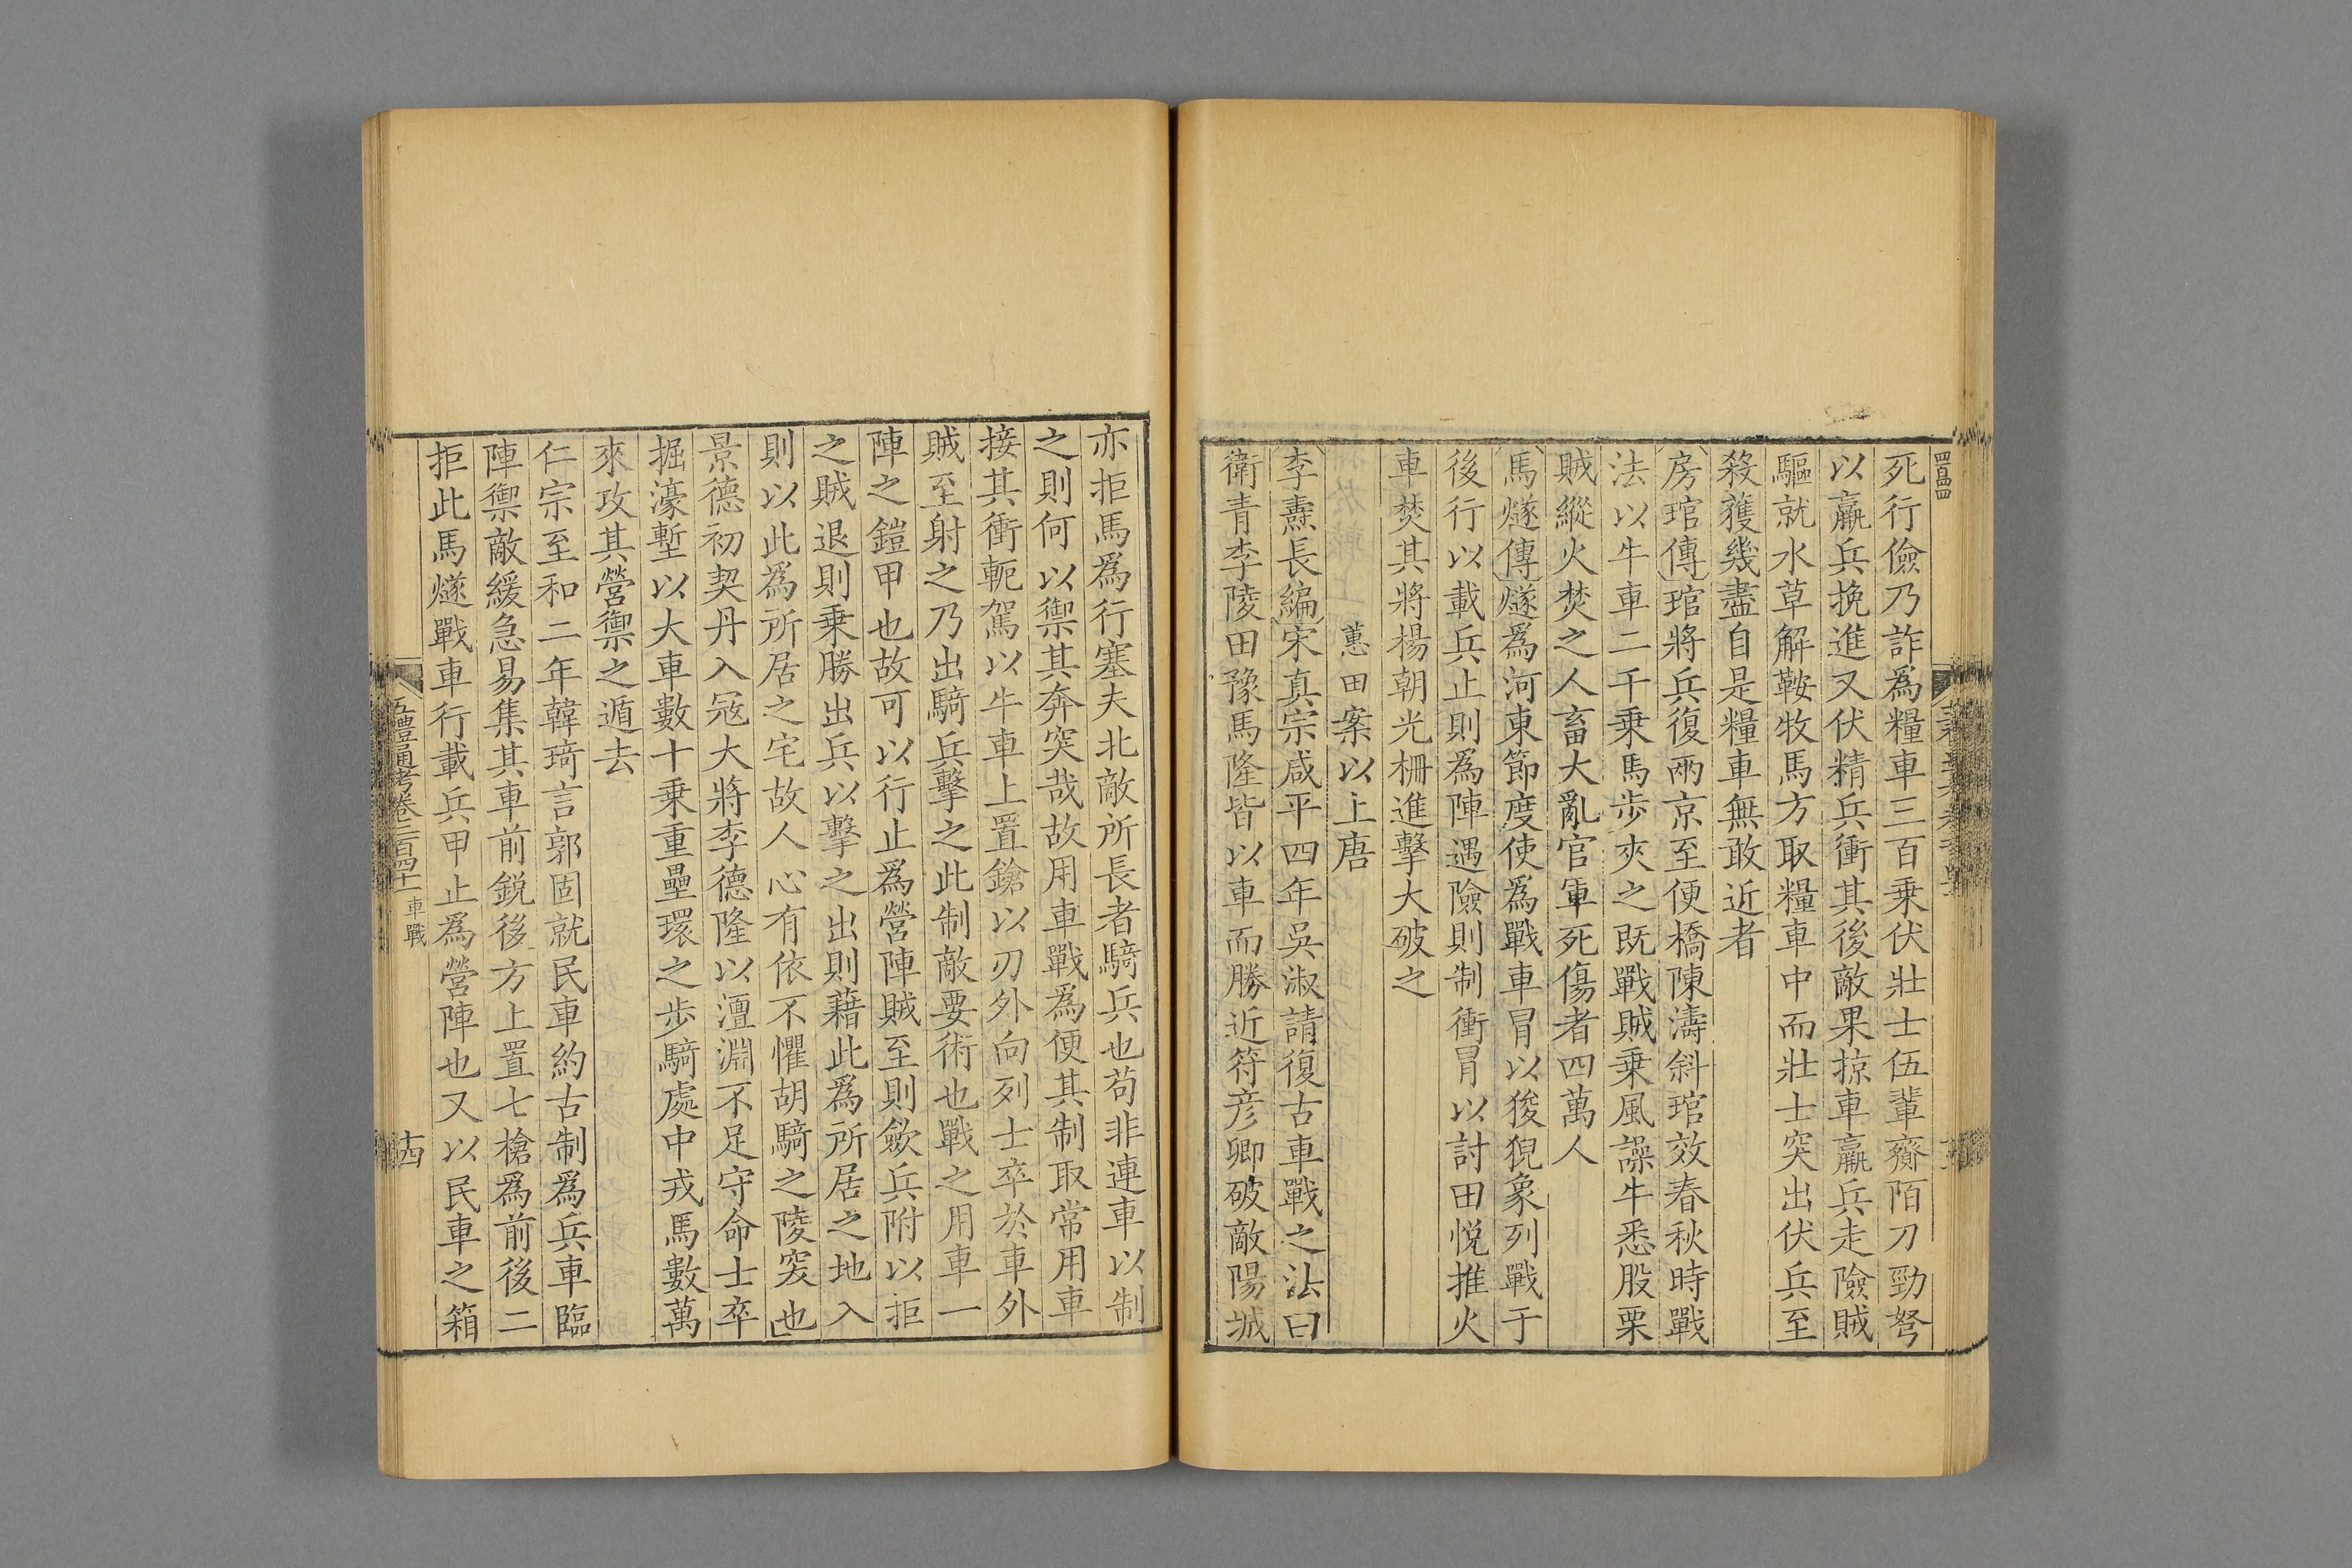 死行儉乃詐爲糧車三百乗伏壯士伍輩齎陌刀勁弩
以羸兵挽進又伏精兵衝其後敵果掠車羸兵走險賊
驅就水草解鞍牧馬方取糧車中而壯士突出伏兵至
殺獲幾盡自是糧車無敢近者
房琯傳琯將兵復兩京至便橋陳濤斜琯效春秋時戰
法以牛車二千乗馬步夾之既戰賊乗風譟牛悉股栗
賊縱火焚之人畜大亂官軍死傷者四萬人
馬燧傳燧爲河東節度使爲戰車冒以狻猊象列戰于
後行以載兵止則爲陣遇險則制衝冒以討田悅推火
車焚其將楊朝光柵進擊大破之
蕙田案以上唐
李燾長編宋真宗咸平四年吳淑請復古車戰之法曰
衛青李陵田豫馬隆皆以車而勝近符彦卿破敵陽城
亦拒馬爲行塞夫北敵所長者騎兵也苟非連車以制
之則何以禦其奔突哉故用車戰爲便其制取常用車
接其衝軛駕以牛車上置鎗以刃外向列士卒於車外
賊至射之乃出騎兵擊之此制敵要術也戰之用車一
陣之鎧甲也故可以行止爲營陣賊至則歛兵附以拒
之賊退則乗勝出兵以擊之出則藉此爲所居之地入
則以此爲所居之宅故人心有依不懼胡騎之陵突也
景德初契丹入冦大將李德隆以澶淵不足守命士卒
掘濠塹以大車數十乗重壘環之步騎處中戎馬數萬
來攻其營禦之遁去
仁宗至和二年韓琦言郭固就民車約古制爲兵車臨
陣禦敵緩急易集其車前鋭後方上置七槍爲前後二
拒此馬燧戰車行載兵甲止爲營陣也又以民車之箱
五禮通考卷二百四十一 車戰
十四